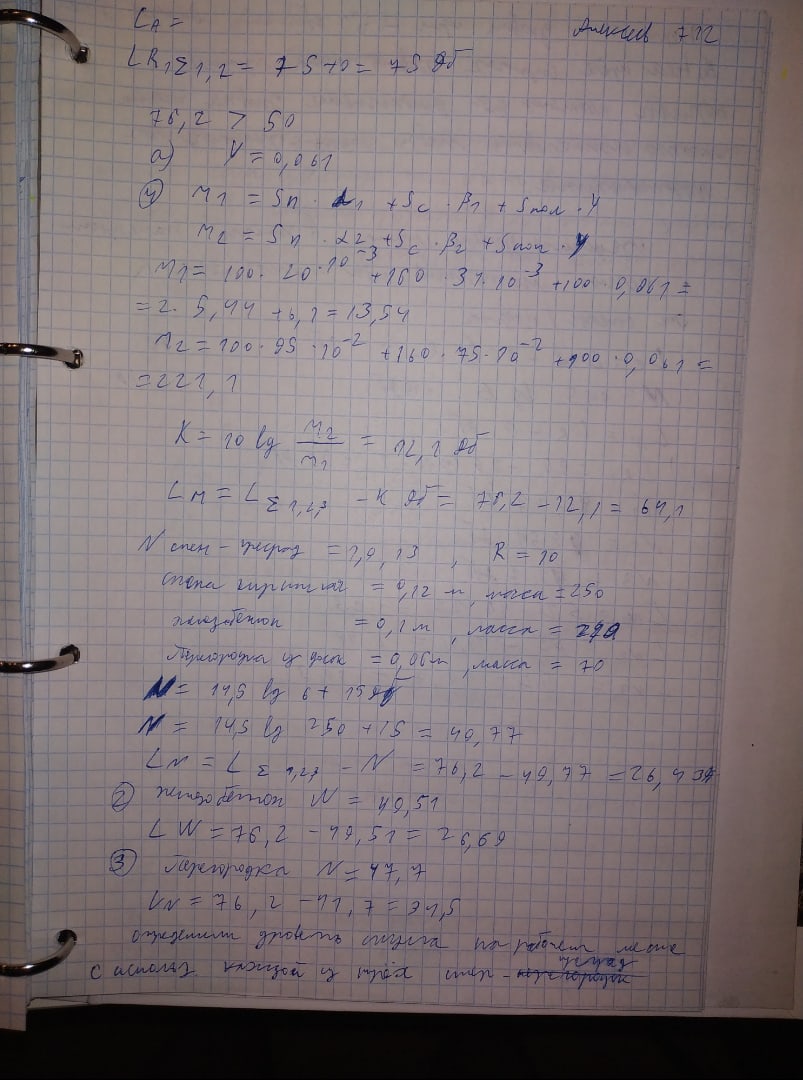 LA =
Алексеев 712
LR1Σ1,2 = 75+0 = 75 дб
76,2 > 50
а) γ = 0,061
④ M1 = Sп · α1 + Sc · β1 + Sпол · γ
M2 = Sп · α2 + Sc · β2 + Sпол · γ
M1 = 100 · 20 · 10⁻³ + 160 · 34 · 10⁻³ + 100 · 0,061 =
= 2 · 5,44 + 6,1 = 13,54
M2 = 100 · 95 · 10⁻² + 160 · 75 · 10⁻² + 100 · 0,061 =
= 221,1
K = 10 lg M2/M1 = 12,1 дб
LM = LΣ1,2,3 - K дб = 76,2 - 12,1 = 64,1
N стен - = 1,9, 13 , R = 10
кирпичная = 0,12 м, масса = 250
железобетон = 0,1 м, масса =
Перегородка из = 0,06 м, масса = 70
N = 14,5 lg 6 + 15 дб
N = 14,5 lg 250 + 15 = 49,77
LN = LΣ1,2,3 - N = 76,2 - 49,77 = 26,4
② железобетон N = 49,51
LN = 76,2 - 49,51 = 26,69
③ Перегородка N = 47,7
LN = 76,2 - 41,7 = 34,5
определили уровень шума на рабочем месте
с использ каждой из трёх стен - преград